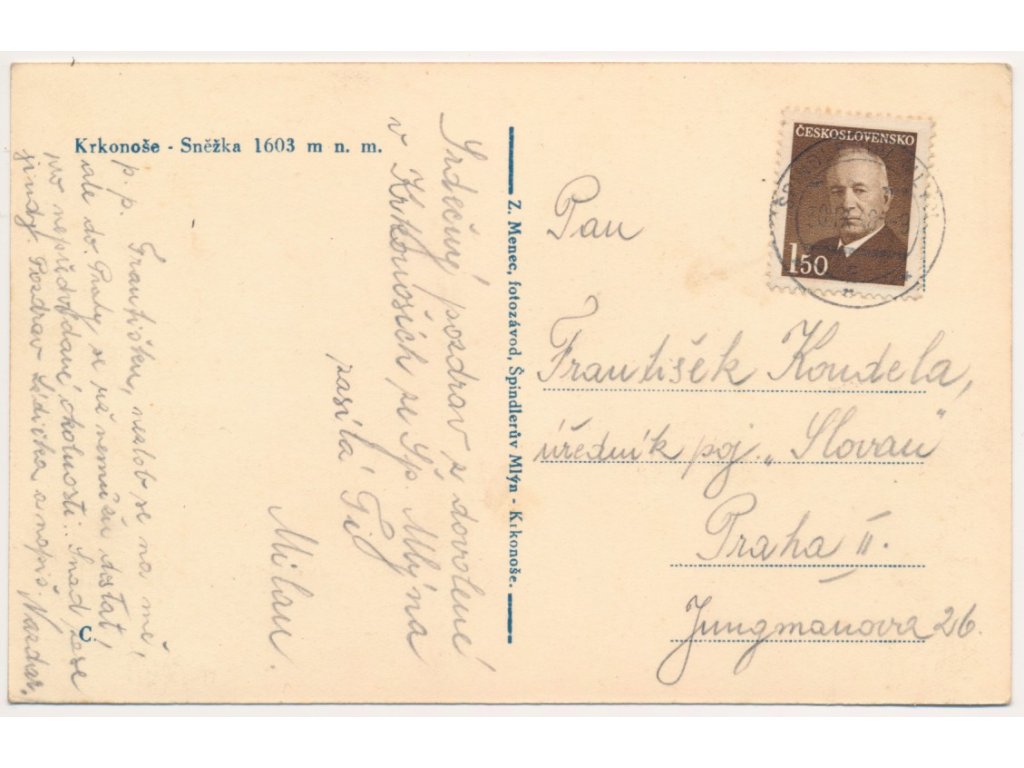 Krkonoše - Sněžka 1603 m n. m.
Srdečný pozdrav z dovolené
v Krkonoších ze Šp. Mlýna
zasílá Ti
Milan.
p. p. Františku, nezlob se na mě,
ale do Prahy se už nemůžu dostat!
pro nepředvídané okolnosti. Snad zase
jindy. Pozdrav Lidička a napiš. Nazdar.
C
Z. Menec, fotozávod, Špindlerův Mlýn - Krkonoše.
ČESKOSLOVENSKO
1.50
Pan
František Koudela,
úředník poj. „Slovan"
Praha II.
Jungmanova 26.